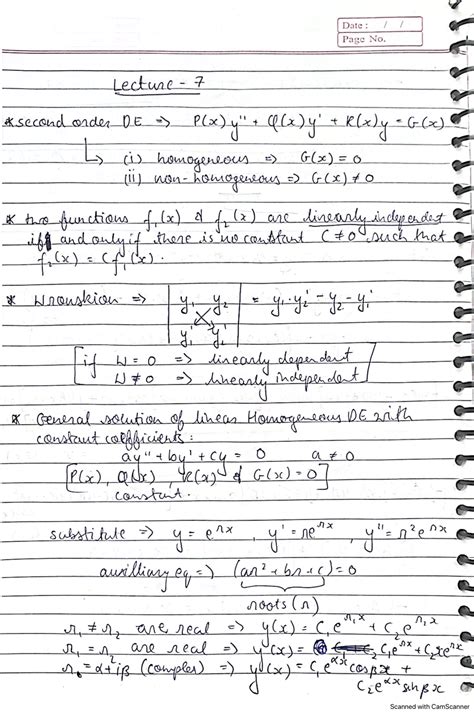 Date : / /
Page No.
Lecture - 7
* second order DE => P(x)y" + Q(x)y' + R(x)y = G(x)
↳ (i) homogeneous => G(x) = 0
(ii) non-homogeneous => G(x) ≠ 0
* two functions f₁(x) & f₂(x) are linearly independent
if and only if there is no constant C ≠ 0 such that
f₂(x) = C f₁(x).
* Wronskion => | y₁ y₂ | = y₁·y₂' - y₂ - y₁'
| y₁' y₂' |
[ if W = 0 => linearly dependent
W ≠ 0 => linearly independent ]
* General solution of linear Homogeneous DE with
constant coefficients :
ay" + by' + cy = 0 a ≠ 0
[P(x), Q(x), R(x) & G(x) = 0]
constant.
substitute => y = e^rx, y' = re^rx, y" = r²e^rx
auxilliary eq => (ar² + br + c) = 0
roots (r)
r₁ ≠ r₂ are real => y(x) = C₁e^r₁x + C₂e^r₂x
r₁ = r₂ are real => y(x) = C₁e^rx + C₂xe^rx
r = α + iβ (complex) => y(x) = C₁e^αx cosβx +
C₂e^αx sinβx
Scanned with CamScanner